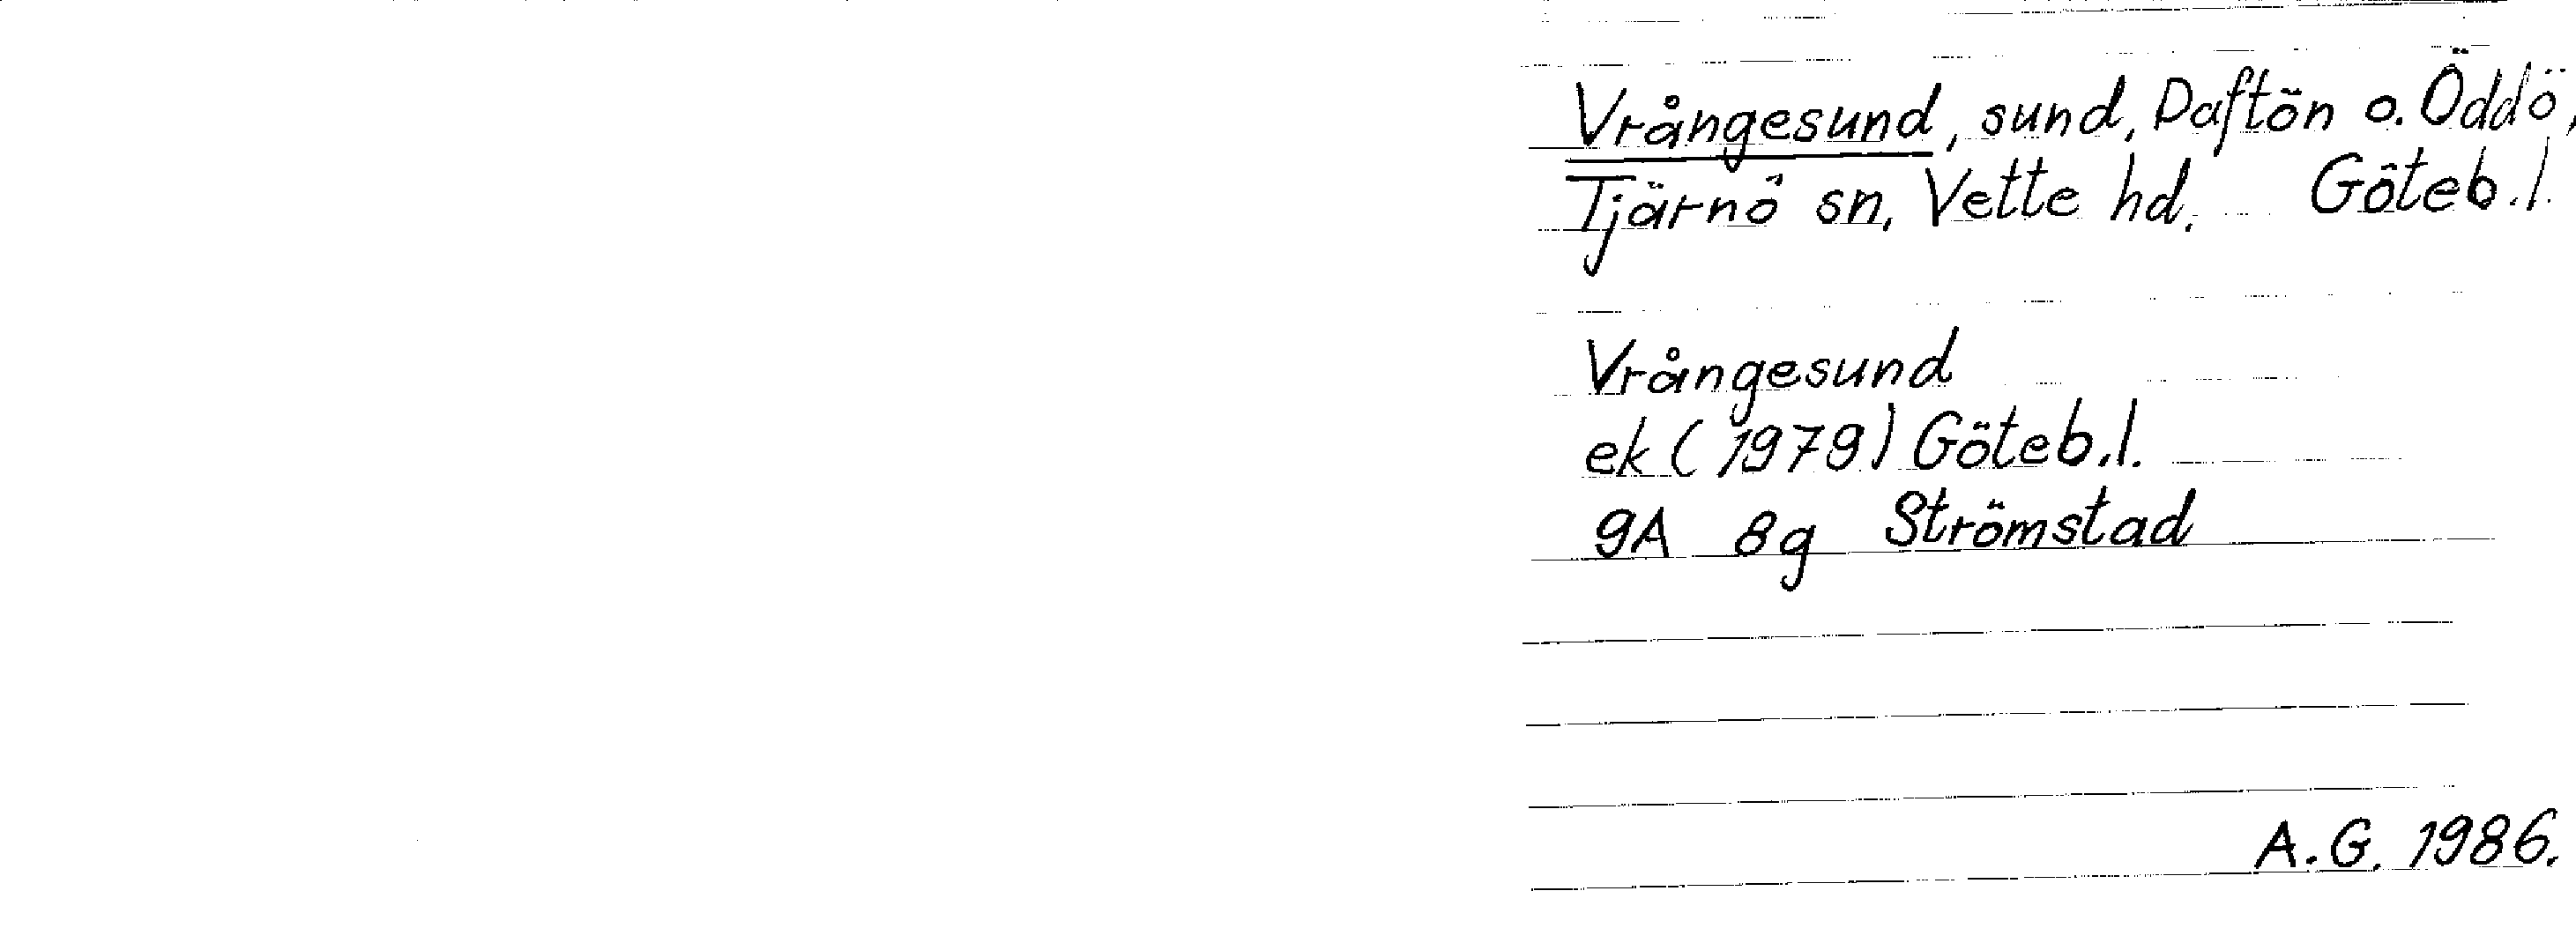 Vrångesund, sund, Daftön o. Öddö,
Tjärnö sn, Vette hd. Göteb.l.
Vrångesund
ek (1979) Göteb.l.
9A 8g Strömstad
A.G. 1986.